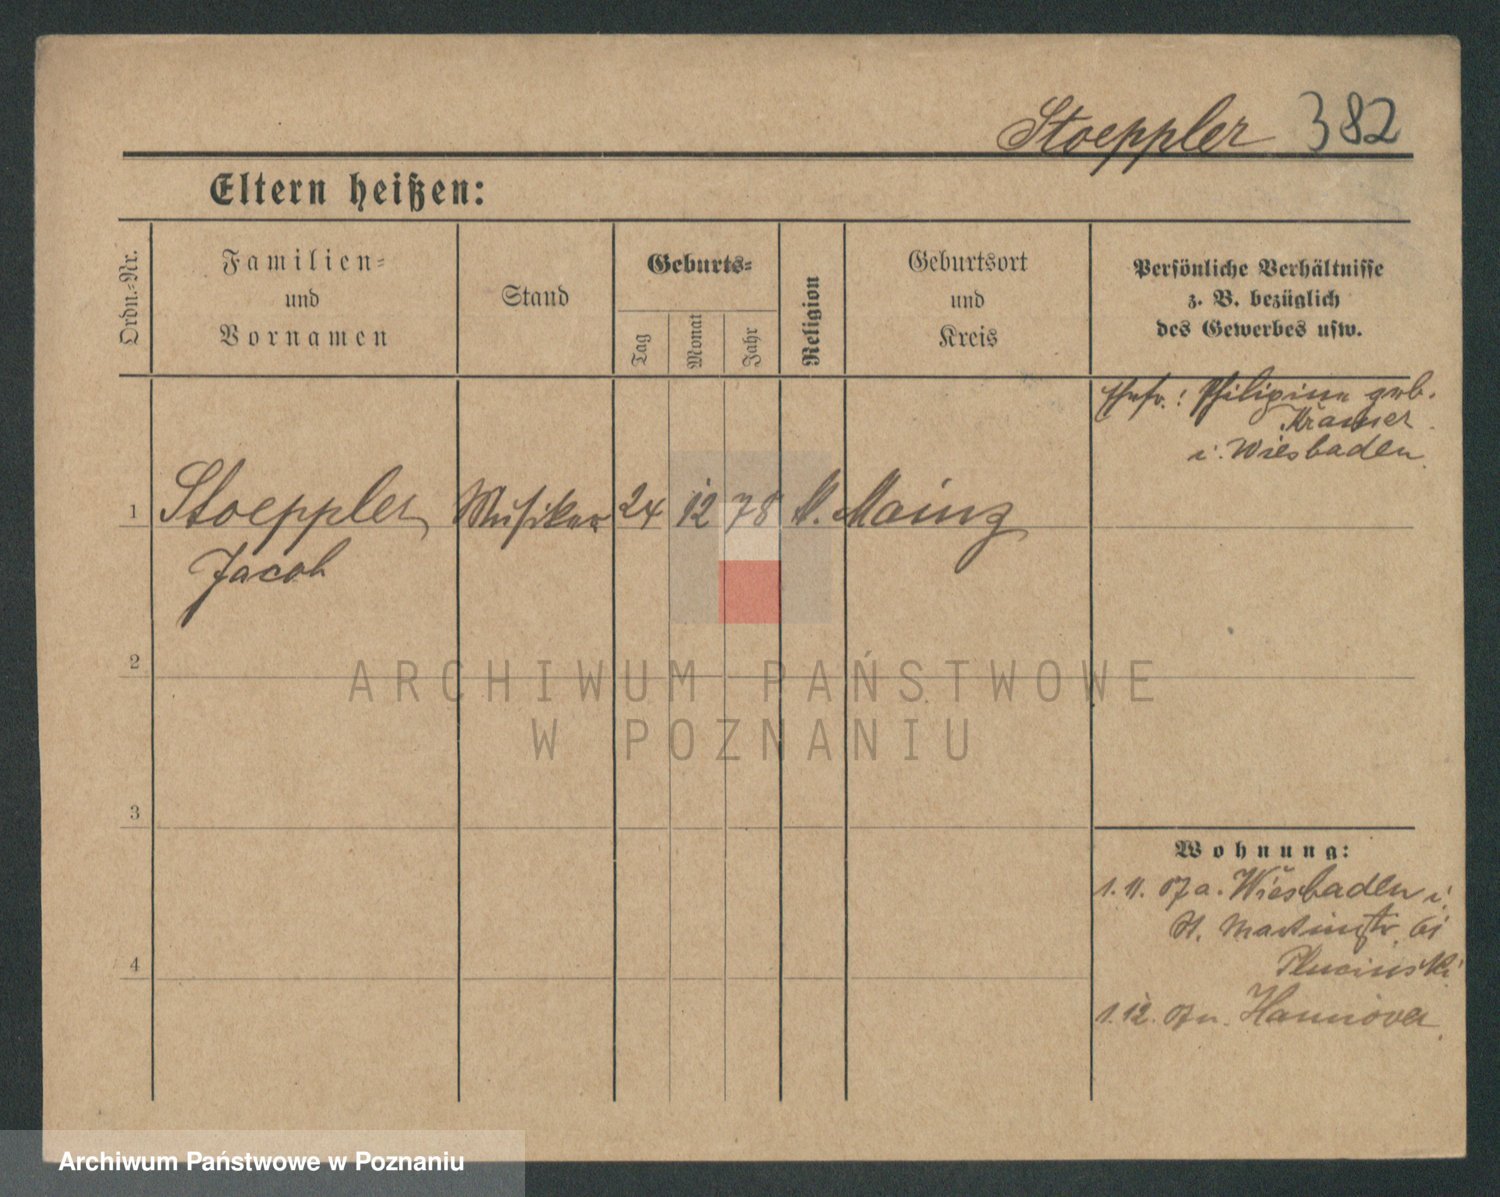 Stoeppler 382
Eltern heißen:
Ordn.-Nr.
Familien-
und
Vornamen
Stand
Geburts-
Tag
Monat
Jahr
Religion
Geburtsort
und
Kreis
Persönliche Verhältnisse
z. B. bezüglich
des Gewerbes usw.
Ehefr.: Philipine geb.
Kramer
i. Wiesbaden
1 Stoeppler Musiker 24 12 78 Mainz
Jacob
2
3
4
Wohnung:
1. 11. 07 a. Wiesbaden
St. Martinstr. 61
Plucinski
1. 12. 07 n. Hannover
ARCHIWUM PAŃSTWOWE
W POZNANIU
Archiwum Państwowe w Poznaniu